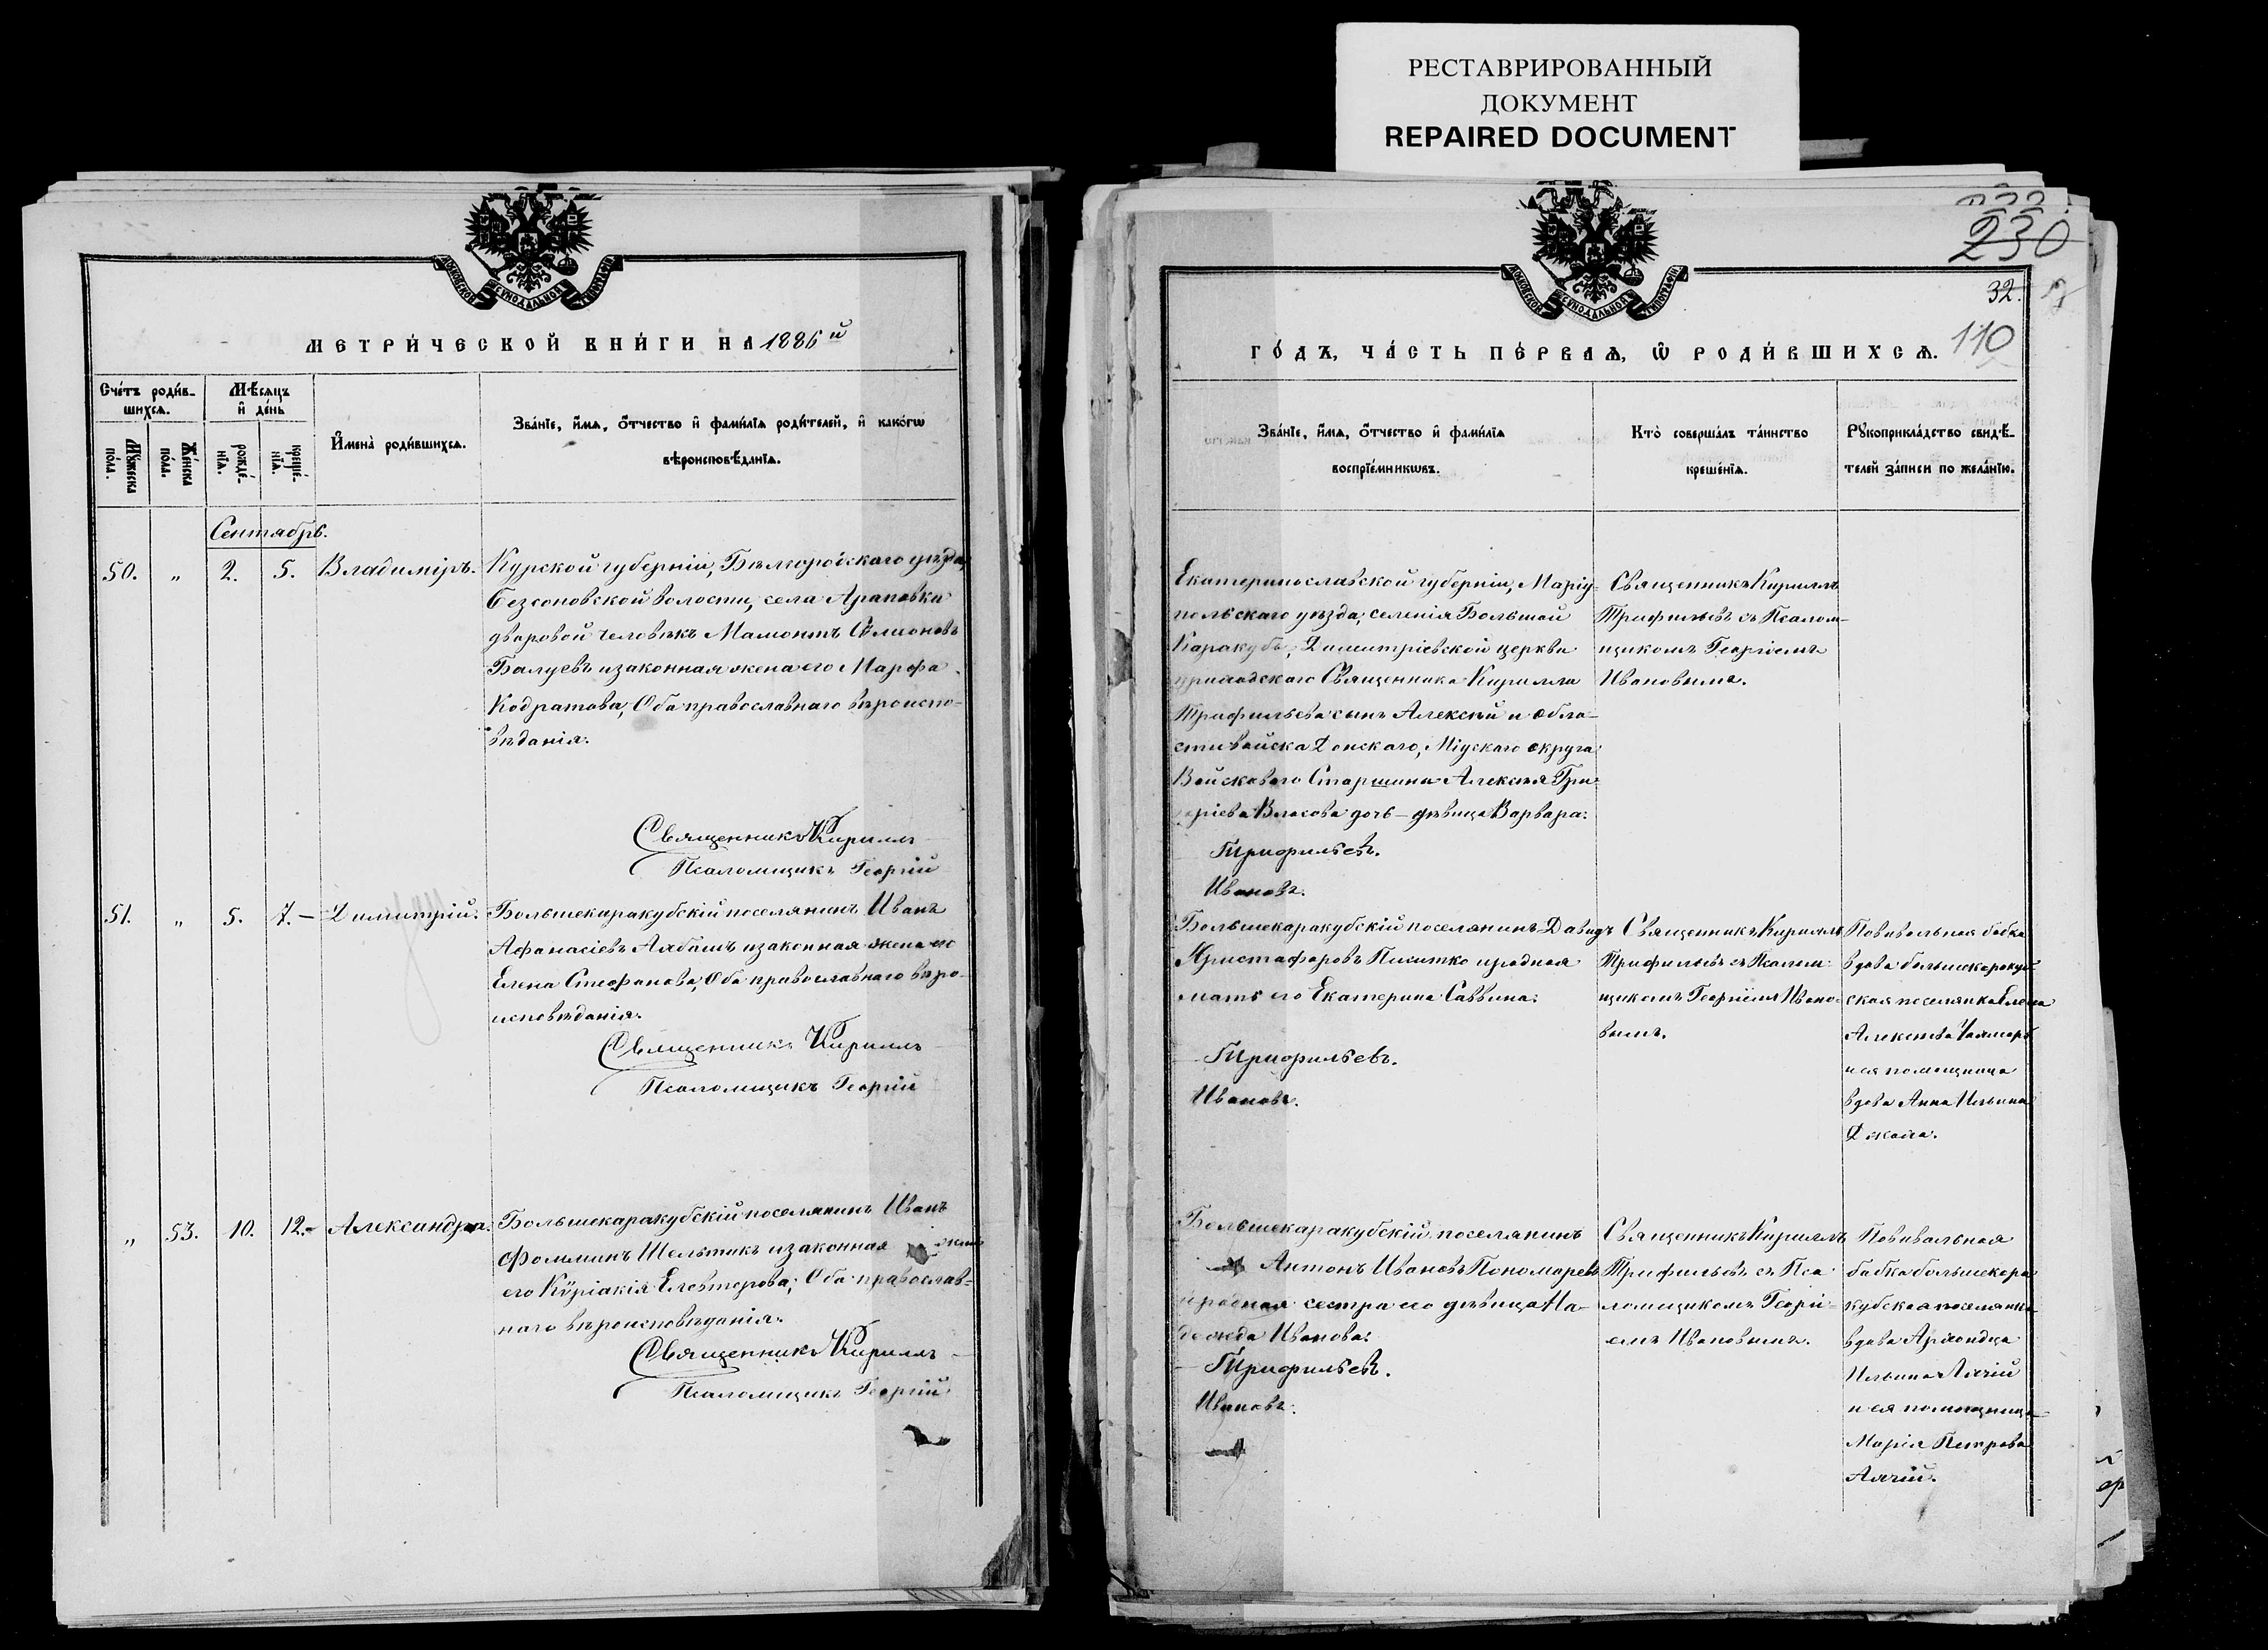 РЕСТАВРИРОВАННЫЙ
ДОКУМЕНТ
REPAIRED DOCUMENT
МОСКОВСКОЙ СѴНОДАЛЬНОЙ ТИПОГРАФІИ
МЕТРИ́ЧЕСКОЙ КНИ́ГИ НА 1886й
Сче́тъ роди́в-
шихсѧ.
Мѣ́сѧцъ
и҆ де́нь
Мꙋ́жеска
по́ла.
Же́нска
по́ла.
рожде́-
нїѧ.
креще́-
нїѧ.
И҆мена̀ роди́вшихсѧ.
Зва́нїе, и҆́мѧ, ѻ҆́тчество и҆ фами́лїѧ роди́телей, и҆ како́гѡ
вѣроисповѣ́данїѧ.
Сентябрь.
50. „ 2. 5. Владиміръ.
Курской губерніи, Бѣлгородскаго уѣзда,
Безсоновской волости, села Араповки
дворовой человѣкъ Мамонтъ
Балуевъ и законная жена его Марфа
Кодратова, Оба православнаго вѣроиспо-
вѣданія.
Священникъ Кириллъ
Псаломщикъ Георгій
51. „ 5. 7. – Димитрій.
Большекаракубскій поселянинъ Иванъ
Афанасіевъ Ялбашъ и законная жена его
Елена Стефанова, Оба православнаго вѣро-
исповѣданія.
Священникъ Кириллъ
Псаломщикъ Георгій
„ 53. 10. 12. – Александра.
Большекаракубскій поселянинъ Иванъ
Фоминъ Шельтикъ и законная жена
его Кѵріакія Елевтерова, Оба православ-
наго вѣроисповѣданія.
Священникъ Кириллъ
Псаломщикъ Георгій
МОСКОВСКОЙ СѴНОДАЛЬНОЙ ТИПОГРАФІИ
230
32.
110
ГО́ДЪ, ЧА́СТЬ ПЕ́РВАѦ, Ѽ РОДИ́ВШИХСѦ.
Зва́нїе, и҆́мѧ, ѻ҆́тчество и҆ фами́лїѧ
воспрїе́мникѡвъ.
Кто̀ соверша́лъ та́инство
креще́нїѧ.
Рꙋкоприкла́дство свидѣ́-
телей за́писи по жела́нїю.
Екатеринославской губерніи, Маріу-
польскаго уѣзда, селенія Большой
Каракубы, Димитріевской церкви
приходскаго Священника Кирилла
Трифильева сынъ Алексѣй и Обла-
сти войска Донскаго, Міускаго округа
Войсковаго Старшины Алексѣя Гри-
горіева Власова дочь – дѣвица Варвара.
Трифильевъ.
Ивановъ.
Священникъ Кириллъ
Трифильевъ съ Псалом-
щикомъ Георгіемъ
Ивановымъ.
Большекаракубскій поселянинъ Давидъ
Христафоровъ Пичитко и родная
мать его Екатерина Саввина.
Трифильевъ.
Ивановъ.
Священникъ Кириллъ
Трифильевъ съ Псалом-
щикомъ Георгіемъ Ивано-
вымъ.
Повивальная бабка
вдова большекаракуб-
ская поселянка Елена
Алексѣева
и ея помощница
вдова Анна Ильина
Джана.
Большекаракубскій поселянинъ
Антонъ Ивановъ Пономаревъ
и родная сестра его дѣвица На-
дежда Иванова.
Трифильевъ.
Ивановъ.
Священникъ Кириллъ
Трифильевъ съ Пса-
ломщикомъ Георгі-
емъ Ивановымъ.
Повивальная
бабка большекара-
кубская поселянка
вдова
Ильина Аячій
и ея помощница
Марія Петрова
Аячій.